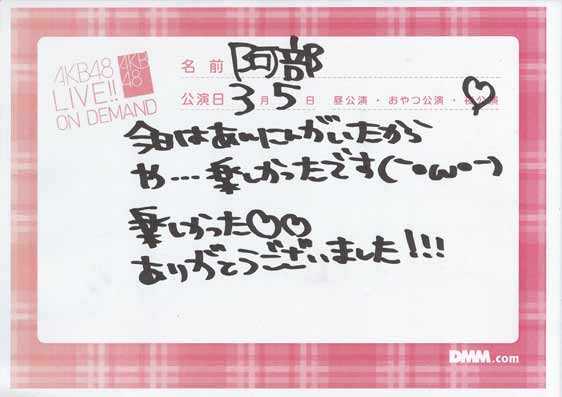 AKB48
LIVE!!
ON DEMAND
AKB
48
名前 阿部
公演日 3月5日 昼公演・おやつ公演・夜公演
今日はあんにんがいたから
や…楽しかったです(ー●ω●ー)
楽しかった♡♡
ありがとうございました!!!
DMM.com